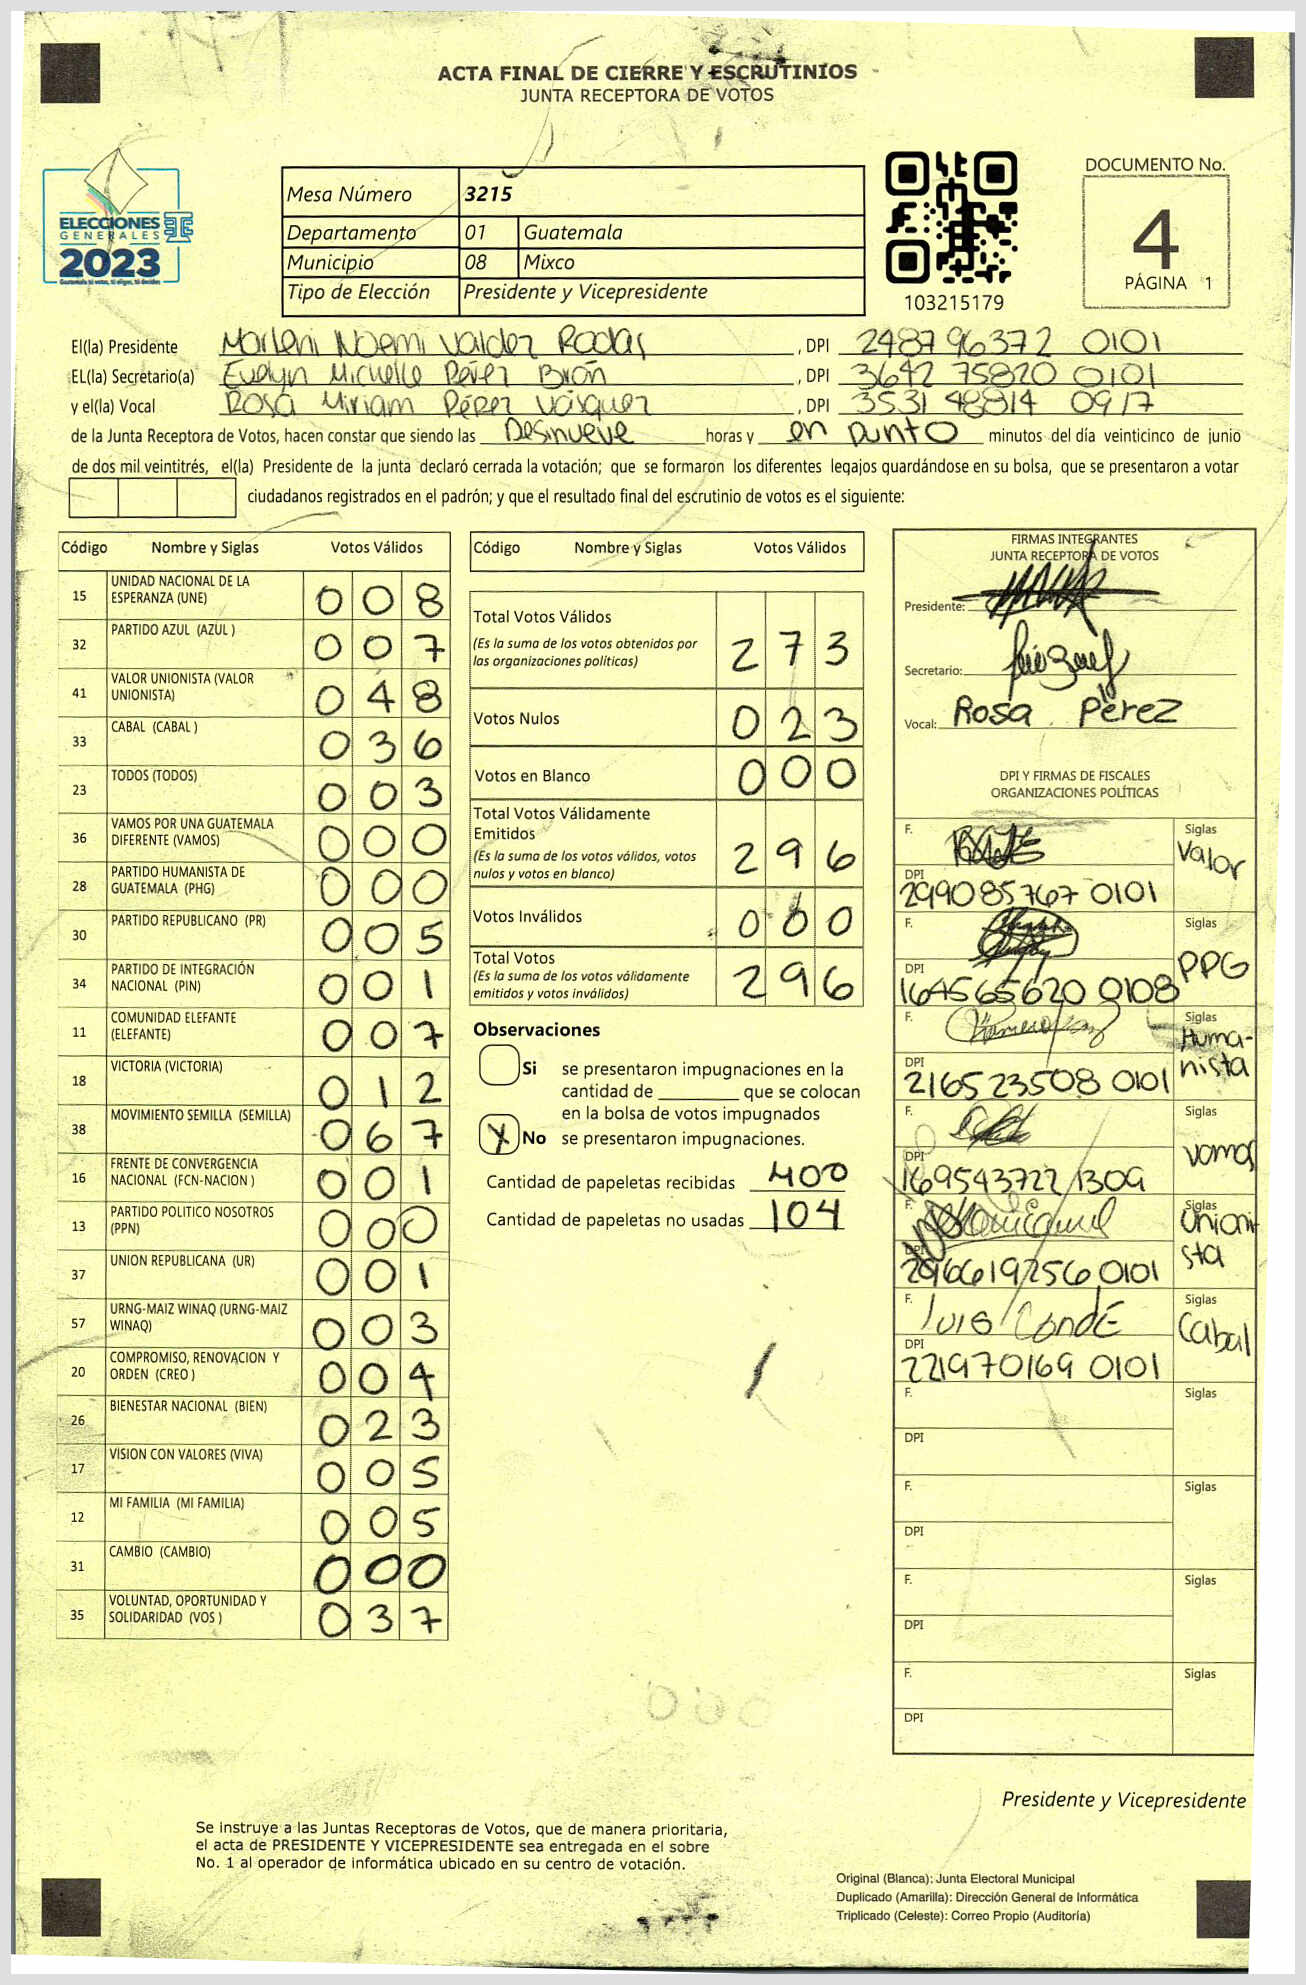 ACTA FINAL DE CIERRE Y ESCRUTINIOS
JUNTA RECEPTORA DE VOTOS
ELECCIONES
GENERALES
2023
Mesa Número 3215
Departamento 01 Guatemala
Municipio 08 Mixco
Tipo de Elección Presidente y Vicepresidente
103215179
DOCUMENTO No.
4
PÁGINA 1
El(la) Presidente Marleni Noemi Valdez Rodas, DPI 248796372 0101
EL(la) Secretario(a) Evelyn Michelle Pérez Brán, DPI 3642 75820 0101
y el(la) Vocal Rosa Miriam Pérez Vásquez, DPI 3531 48814 0917
de la Junta Receptora de Votos, hacen constar que siendo las Desinueve horas y en punto minutos del día veinticinco de junio
de dos mil veintitrés, el(la) Presidente de la junta declaró cerrada la votación; que se formaron los diferentes legajos guardándose en su bolsa, que se presentaron a votar
ciudadanos registrados en el padrón; y que el resultado final del escrutinio de votos es el siguiente:
Código Nombre y Siglas Votos Válidos
15 UNIDAD NACIONAL DE LA ESPERANZA (UNE) 008
32 PARTIDO AZUL (AZUL ) 007
41 VALOR UNIONISTA (VALOR UNIONISTA) 048
33 CABAL (CABAL ) 036
23 TODOS (TODOS) 003
36 VAMOS POR UNA GUATEMALA DIFERENTE (VAMOS) 000
28 PARTIDO HUMANISTA DE GUATEMALA (PHG) 000
30 PARTIDO REPUBLICANO (PR) 005
34 PARTIDO DE INTEGRACIÓN NACIONAL (PIN) 001
11 COMUNIDAD ELEFANTE (ELEFANTE) 007
18 VICTORIA (VICTORIA) 012
38 MOVIMIENTO SEMILLA (SEMILLA) 067
16 FRENTE DE CONVERGENCIA NACIONAL (FCN-NACION ) 001
13 PARTIDO POLITICO NOSOTROS (PPN) 000
37 UNION REPUBLICANA (UR) 001
57 URNG-MAIZ WINAQ (URNG-MAIZ WINAQ) 003
20 COMPROMISO, RENOVACION Y ORDEN (CREO ) 004
26 BIENESTAR NACIONAL (BIEN) 023
17 VISION CON VALORES (VIVA) 005
12 MI FAMILIA (MI FAMILIA) 005
31 CAMBIO (CAMBIO) 000
35 VOLUNTAD, OPORTUNIDAD Y SOLIDARIDAD (VOS ) 037
Código Nombre y Siglas Votos Válidos
Total Votos Válidos
(Es la suma de los votos obtenidos por
las organizaciones políticas) 273
Votos Nulos 023
Votos en Blanco 000
Total Votos Válidamente
Emitidos
(Es la suma de los votos válidos, votos
nulos y votos en blanco) 296
Votos Inválidos 000
Total Votos
(Es la suma de los votos válidamente
emitidos y votos inválidos) 296
Observaciones
Si se presentaron impugnaciones en la
cantidad de ________ que se colocan
en la bolsa de votos impugnados
X No se presentaron impugnaciones.
Cantidad de papeletas recibidas 400
Cantidad de papeletas no usadas 104
FIRMAS INTEGRANTES
JUNTA RECEPTORA DE VOTOS
Presidente:
Secretario:
Vocal: Rosa Pérez
DPI Y FIRMAS DE FISCALES
ORGANIZACIONES POLÍTICAS
F. Siglas Valor
DPI 299085767 0101
F. Siglas PPG
DPI 164565620 0108
F. Siglas Humanista
DPI 216523508 0101
F. Siglas vamos
DPI 169543722 1309
F. Siglas Unionista
DPI 296619256 0101
F. Luis Conde Siglas Cabal
DPI 221970169 0101
F. Siglas
DPI
F. Siglas
DPI
F. Siglas
DPI
F. Siglas
DPI
000
Presidente y Vicepresidente
Se instruye a las Juntas Receptoras de Votos, que de manera prioritaria,
el acta de PRESIDENTE Y VICEPRESIDENTE sea entregada en el sobre
No. 1 al operador de informática ubicado en su centro de votación.
Original (Blanca): Junta Electoral Municipal
Duplicado (Amarilla): Dirección General de Informática
Triplicado (Celeste): Correo Propio (Auditoría)